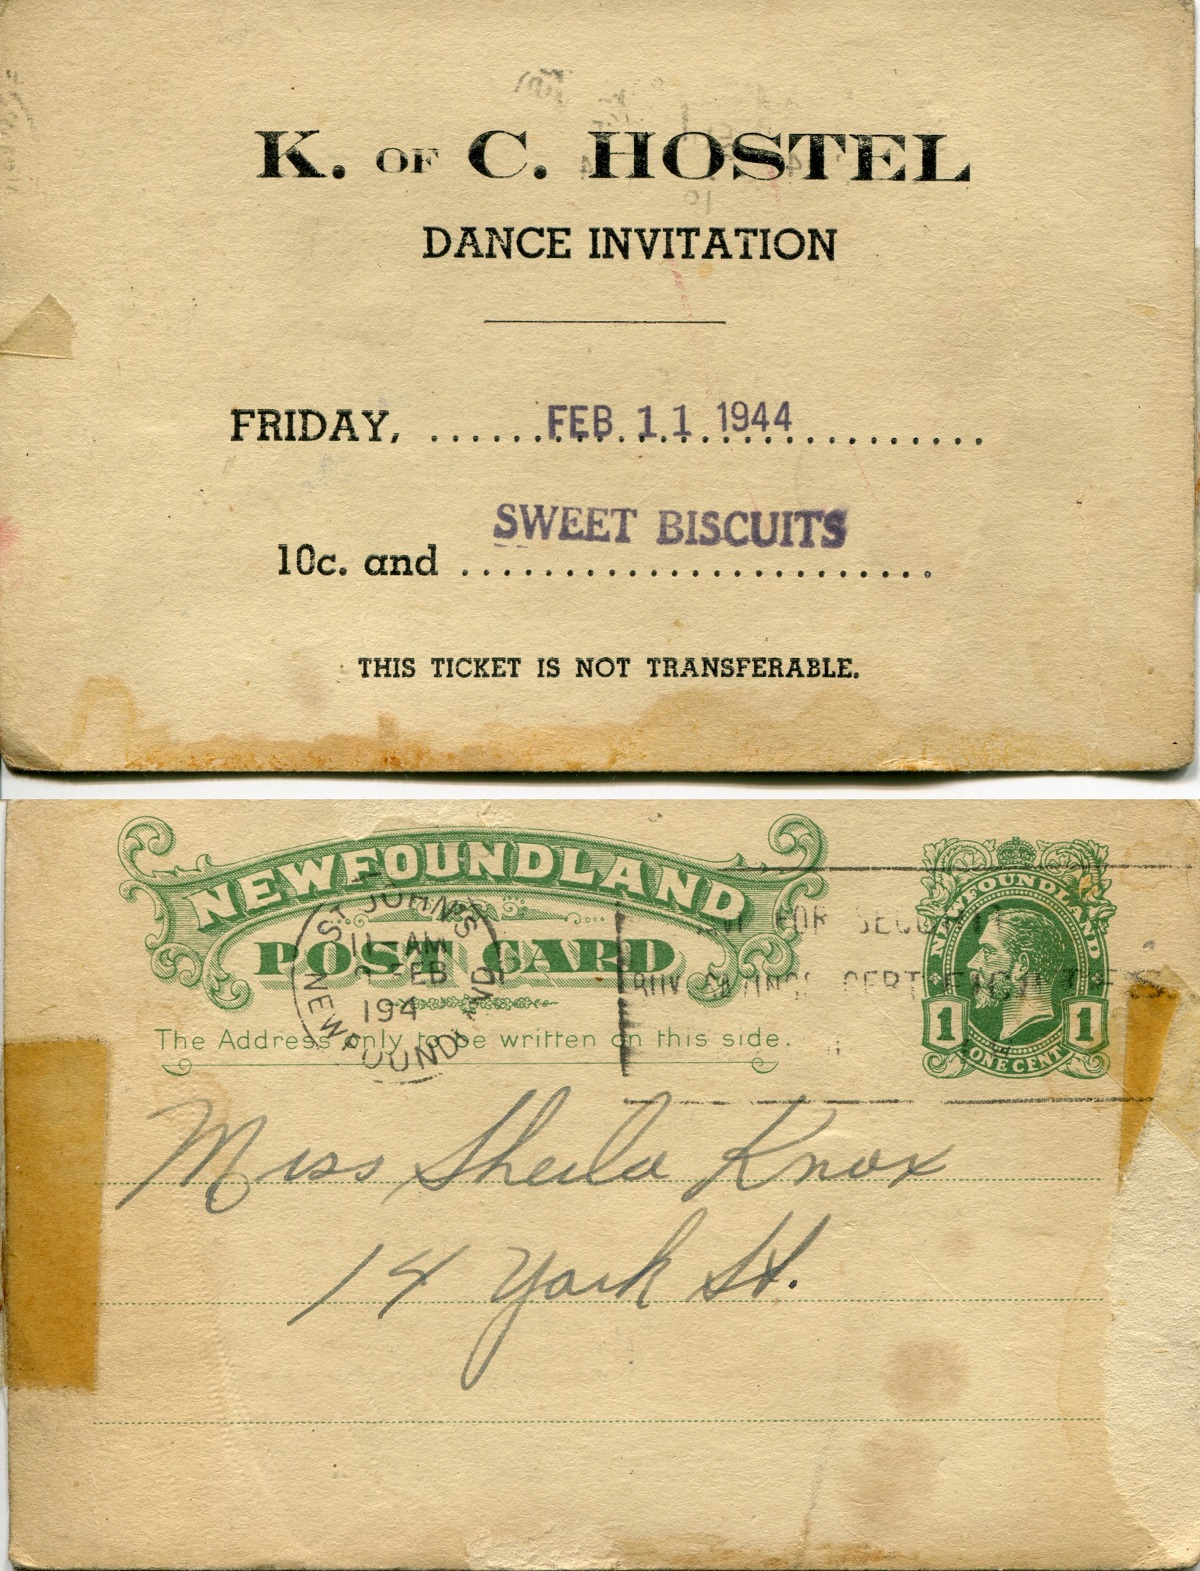 K. OF C. HOSTEL
DANCE INVITATION
FRIDAY, FEB 11 1944
10c. and SWEET BISCUITS
THIS TICKET IS NOT TRANSFERABLE.
NEWFOUNDLAND
POST CARD
The Address only to be written on this side.
ST JOHN'S
11 AM
FEB
194
NEWFOUNDLAND
FOR SECURIT
BUY SAVINGS CERTIFICATES
NEWFOUNDLAND
1 1
ONE CENT
Miss Sheila Knox
14 York St.